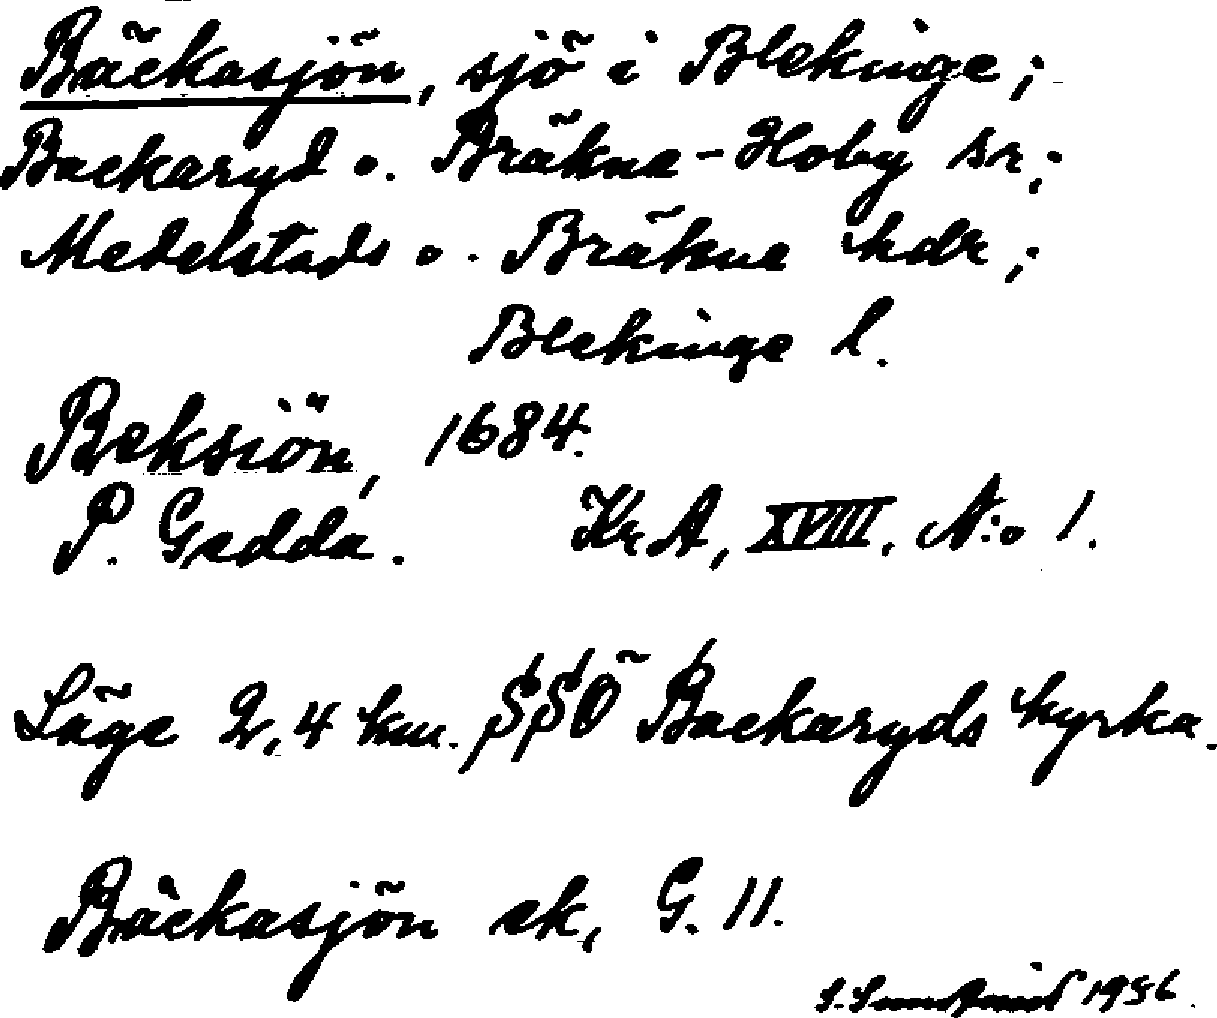 Bäckasjön, sjö i Blekinge;
Backaryd o. Bräkne-Hoby snr;
Medelstads o. Bräkne hdr;
Blekinge l.
Beksiön, 1684.
P. Gedda. KrA, XVIII. N:o 1.
Läge 2,4 km. SSÖ Backaryds kyrka.
Bäckasjön ek, G. 11.
1956.